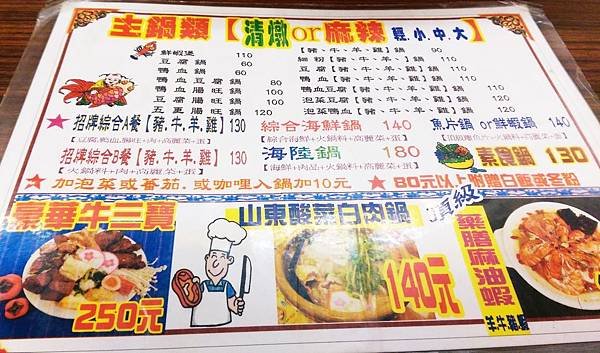 主鍋類【清燉or麻辣 輕.小.中.大】
鮮蝦煲 110
豆腐鍋 60
鴨血鍋 60
鴨血豆腐鍋 80
豆腐腸旺鍋 120
五更腸旺鍋 120
【豬、牛、羊、雞】鍋 90
細粉【豬、牛、羊、雞】鍋 110
豆腐【豬、牛、羊、雞】鍋 110
鴨血【豬、牛、羊、雞】鍋 110
泡菜豆腐【豬、牛、羊、雞】鍋 120
泡菜鴨血【豬、牛、羊、雞】鍋 120
★招牌綜合A餐【豬.牛.羊.雞】130
★招牌綜合B餐【豬.牛.羊.雞】130
【火鍋料+肉+高麗菜+蛋】
綜合海鮮鍋 140
【綜合海鮮+火鍋料+高麗菜+蛋】
海陸鍋 180
【海鮮+肉品+火鍋料+高麗菜+蛋】
魚片鍋 or鮮蝦鍋 140
素食鍋 130
★加泡菜或番茄.或咖哩入鍋加10元
★80元以上附贈白飯或冬粉
豪華牛三寶
250元
山東酸菜白肉鍋
140元
頂級
藥膳麻油蝦